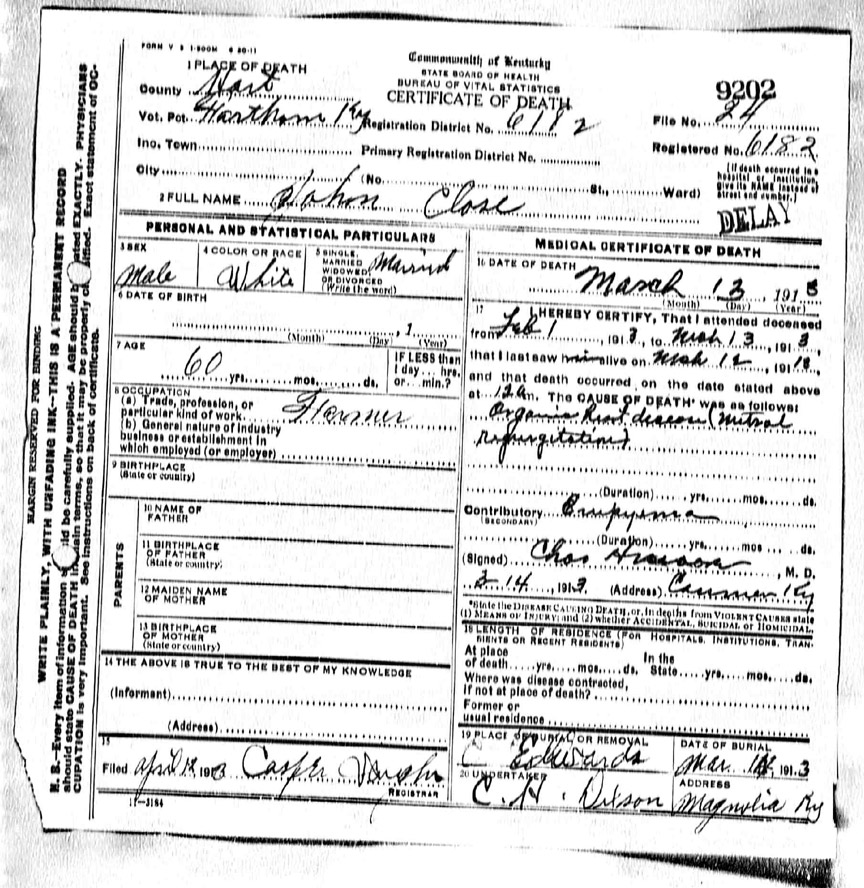 FORM V S 1-500M 6 20-11
1 PLACE OF DEATH
County Hart
Vot. Pct. Harthorn Ky
Inc. Town
City
Commonwealth of Kentucky
STATE BOARD OF HEALTH
BUREAU OF VITAL STATISTICS
CERTIFICATE OF DEATH
Registration District No. 6182
Primary Registration District No.
(No. St., Ward)
9202
File No. 24
Registered No. 6182
[If death occurred in a
hospital or institution,
give its NAME instead of
street and number.]
2 FULL NAME John Close
DELAY
PERSONAL AND STATISTICAL PARTICULARS
3 SEX
Male
4 COLOR OR RACE
White
5 SINGLE,
MARRIED
WIDOWED
OR DIVORCED
(Write the word)
Married
6 DATE OF BIRTH
, 1
(Month) (Day) (Year)
7 AGE
60 yrs. mos. ds.
IF LESS than
1 day hrs.
or min.?
8 OCCUPATION
(a) Trade, profession, or
particular kind of work Farmer
(b) General nature of industry
business or establishment in
which employed (or employer)
9 BIRTHPLACE
(State or country)
PARENTS
10 NAME OF
FATHER
11 BIRTHPLACE
OF FATHER
(State or country)
12 MAIDEN NAME
OF MOTHER
13 BIRTHPLACE
OF MOTHER
(State or country)
14 THE ABOVE IS TRUE TO THE BEST OF MY KNOWLEDGE
(Informant)
(Address)
15
Filed April 12 1913 Casper
REGISTRAR
11-3184
MEDICAL CERTIFICATE OF DEATH
16 DATE OF DEATH
March 13, 1913
(Month) (Day) (Year)
17 I HEREBY CERTIFY, That I attended deceased
from Feb 1 191 3 to Mch 13, 191 3
that I last saw him alive on Mch 12 191
and that death occurred on the date stated above
at 12 a m. The CAUSE OF DEATH* was as follows:
Organic Heart disease (Mitral
regurgitation)
(Duration) yrs. mos. ds.
Contributory Empyema
(SECONDARY)
(Duration) yrs. mos. ds.
(Signed) Chas , M. D.
3 14, 191 3 (Address) Canmer Ky
*State the DISEASE CAUSING DEATH, or, in deaths from VIOLENT CAUSES state
(1) MEANS OF INJURY; and (2) whether ACCIDENTAL, SUICIDAL or HOMICIDAL.
18 LENGTH OF RESIDENCE (FOR HOSPITALS, INSTITUTIONS, TRAN-
SIENTS OR RECENT RESIDENTS)
At place
of death yrs. mos. ds.
In the
State yrs. mos. ds.
Where was disease contracted,
if not at place of death?
Former or
usual residence
19 PLACE OF BURIAL OR REMOVAL
C Edwards
DATE OF BURIAL
Mar. 14, 191 3
20 UNDERTAKER
C. H. Dilson
ADDRESS
Magnolia Ky
MARGIN RESERVED FOR BINDING
WRITE PLAINLY, WITH UNFADING INK—THIS IS A PERMANENT RECORD
N. B.—Every item of information should be carefully supplied. AGE should be stated EXACTLY. PHYSICIANS
should state CAUSE OF DEATH in plain terms, so that it may be properly classified. Exact statement of OC-
CUPATION is very important. See instructions on back of certificate.